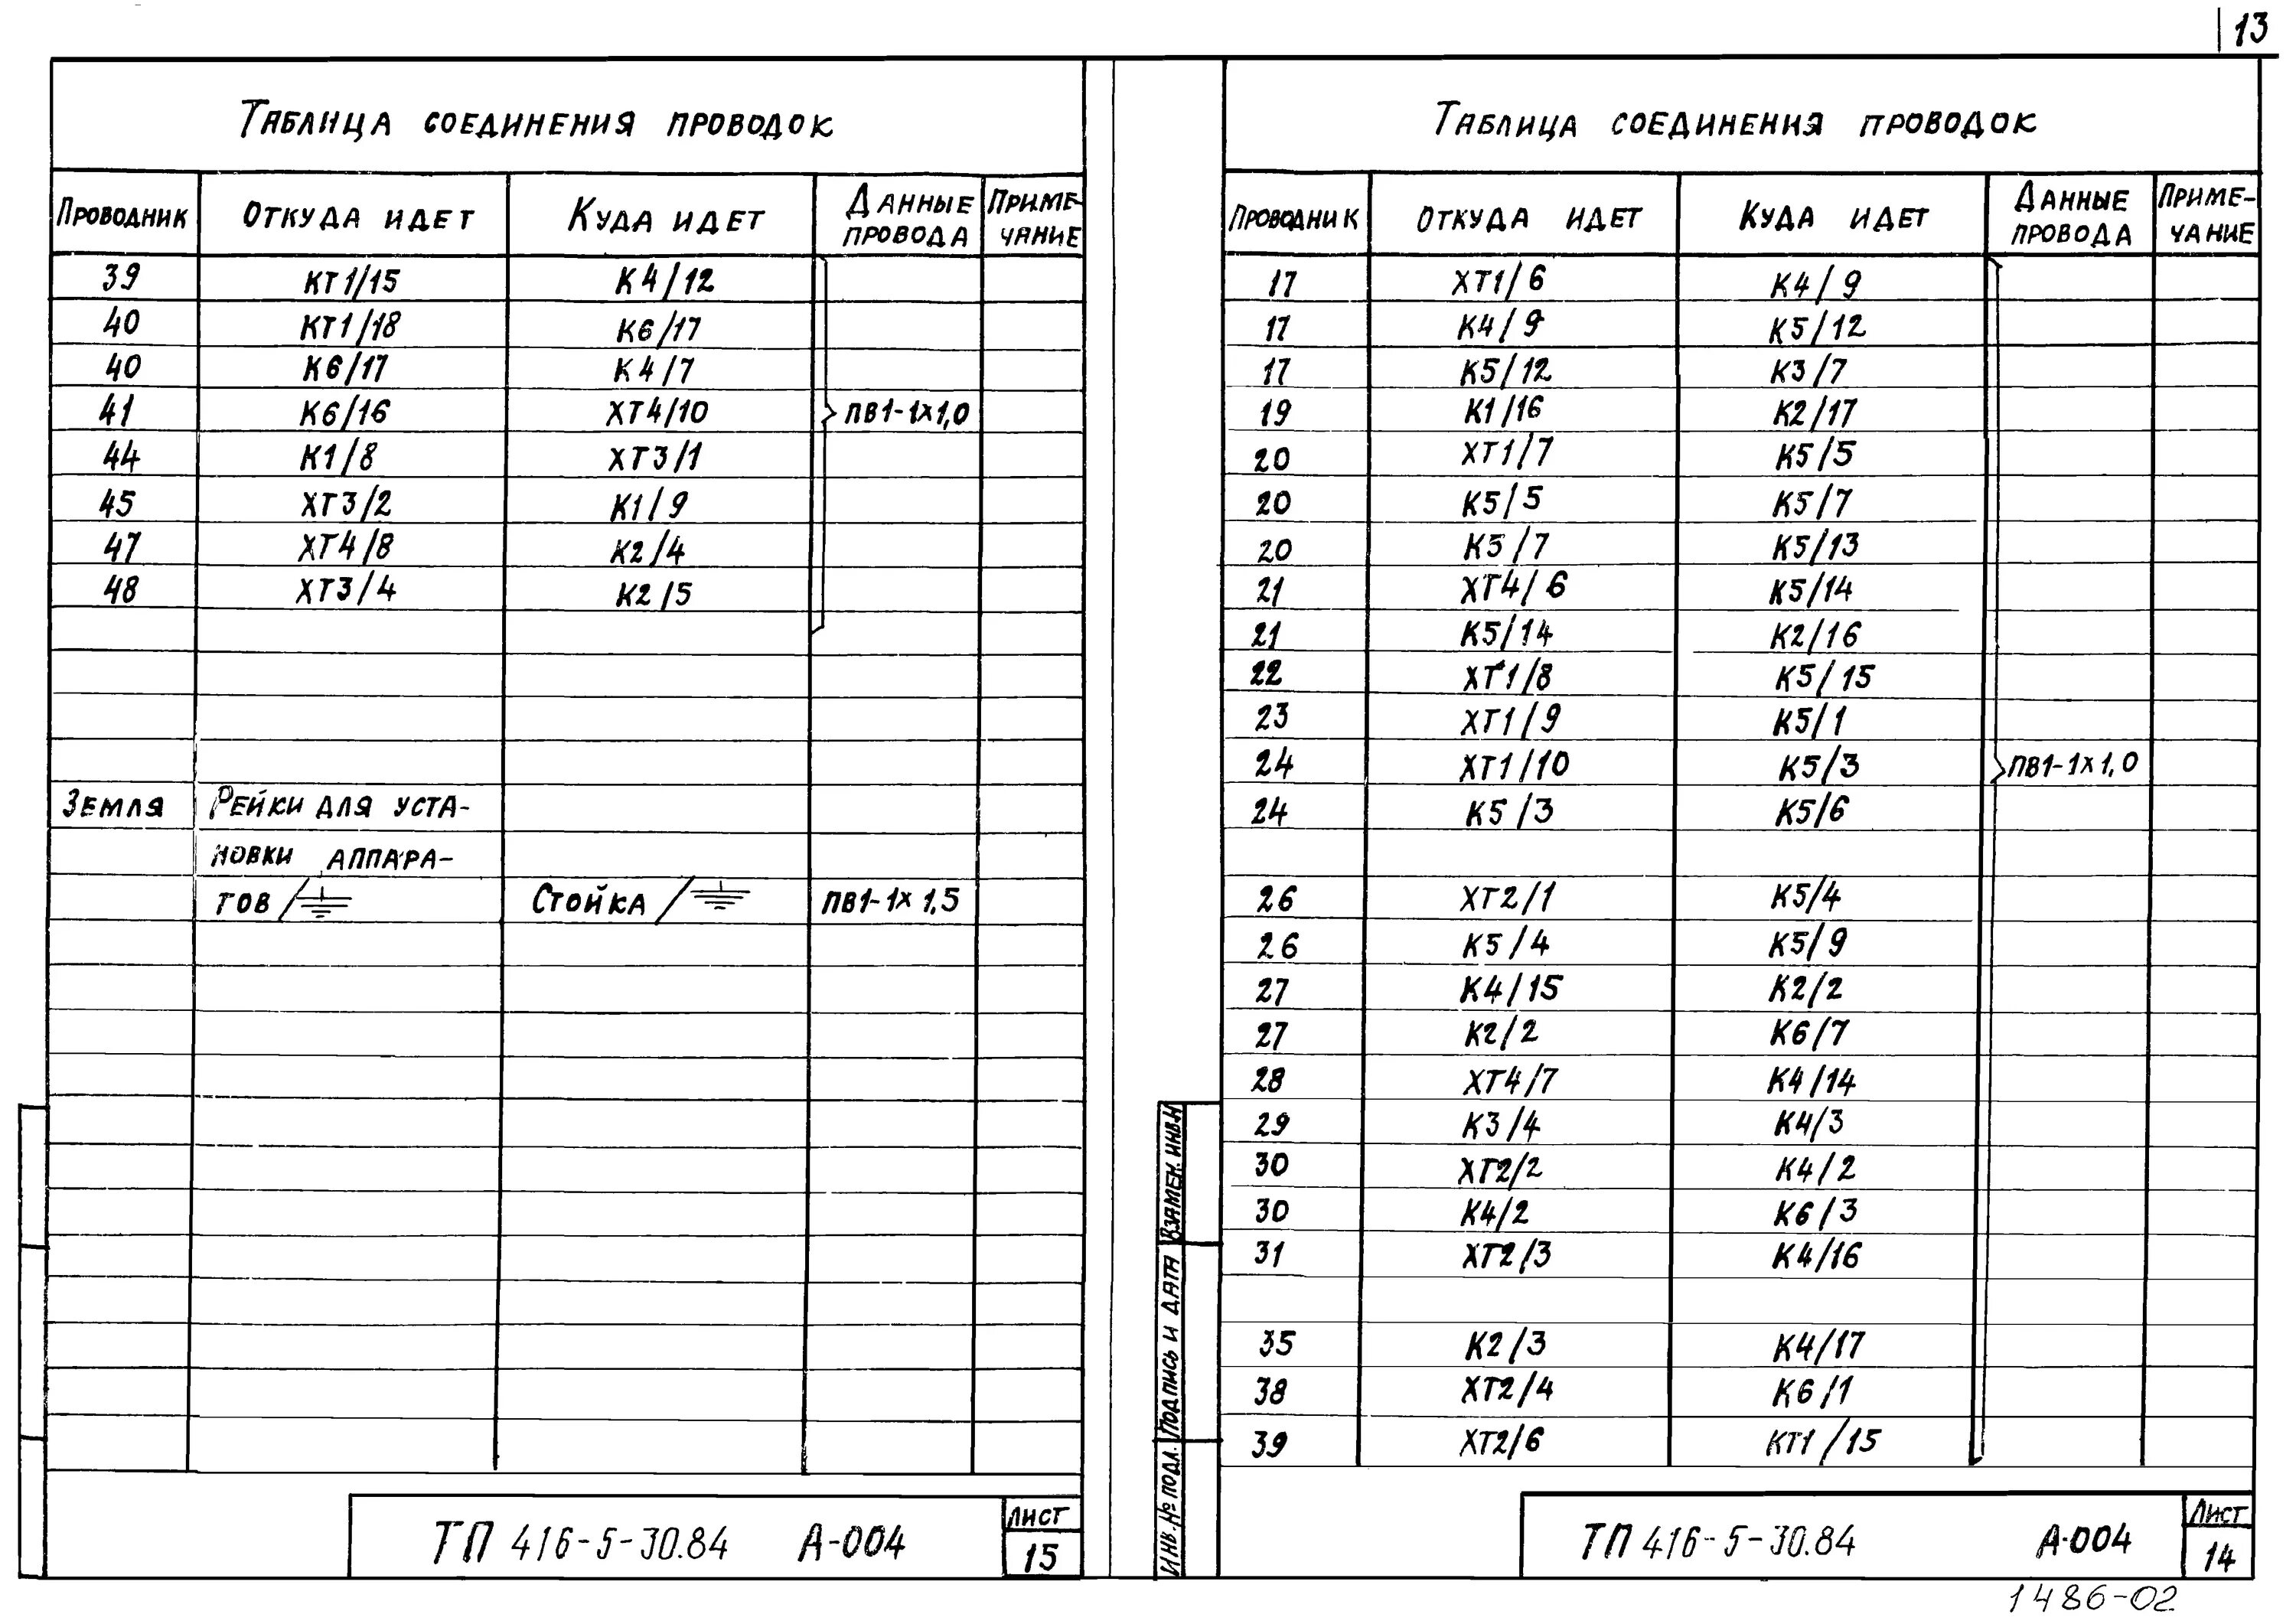 13
Таблица соединения проводок
Проводник Откуда идет Куда идет Данные провода Примечание
39 КТ1/15 К4/12
40 КТ1/18 К6/17
40 К6/17 К4/7
41 К6/16 ХТ4/10 ПВ1-1х1,0
44 К1/8 ХТ3/1
45 ХТ3/2 К1/9
47 ХТ4/8 К2/4
48 ХТ3/4 К2/5
Земля Рейки для уста-
новки аппара-
тов/⏚ Стойка/⏚ ПВ1-1х1,5
ТП 416-5-30.84 А-004
Лист
15
Таблица соединения проводок
Проводник Откуда идет Куда идет Данные провода Приме-чание
17 ХТ1/6 К4/9
17 К4/9 К5/12
17 К5/12 К3/7
19 К1/16 К2/17
20 ХТ1/7 К5/5
20 К5/5 К5/7
20 К5/7 К5/13
21 ХТ4/6 К5/14
21 К5/14 К2/16
22 ХТ1/8 К5/15
23 ХТ1/9 К5/1
24 ХТ1/10 К5/3 ПВ1-1х1,0
24 К5/3 К5/6
26 ХТ2/1 К5/4
26 К5/4 К5/9
27 К4/15 К2/2
27 К2/2 К6/7
28 ХТ4/7 К4/14
29 К3/4 К4/3
30 ХТ2/2 К4/2
30 К4/2 К6/3
31 ХТ2/3 К4/16
35 К2/3 К4/17
38 ХТ2/4 К6/1
39 ХТ2/6 КТ1/15
Взамен. инв.N
Подпись и дата
Инв.№ подл.
ТП 416-5-30.84 А-004
Лист
14
1486-02